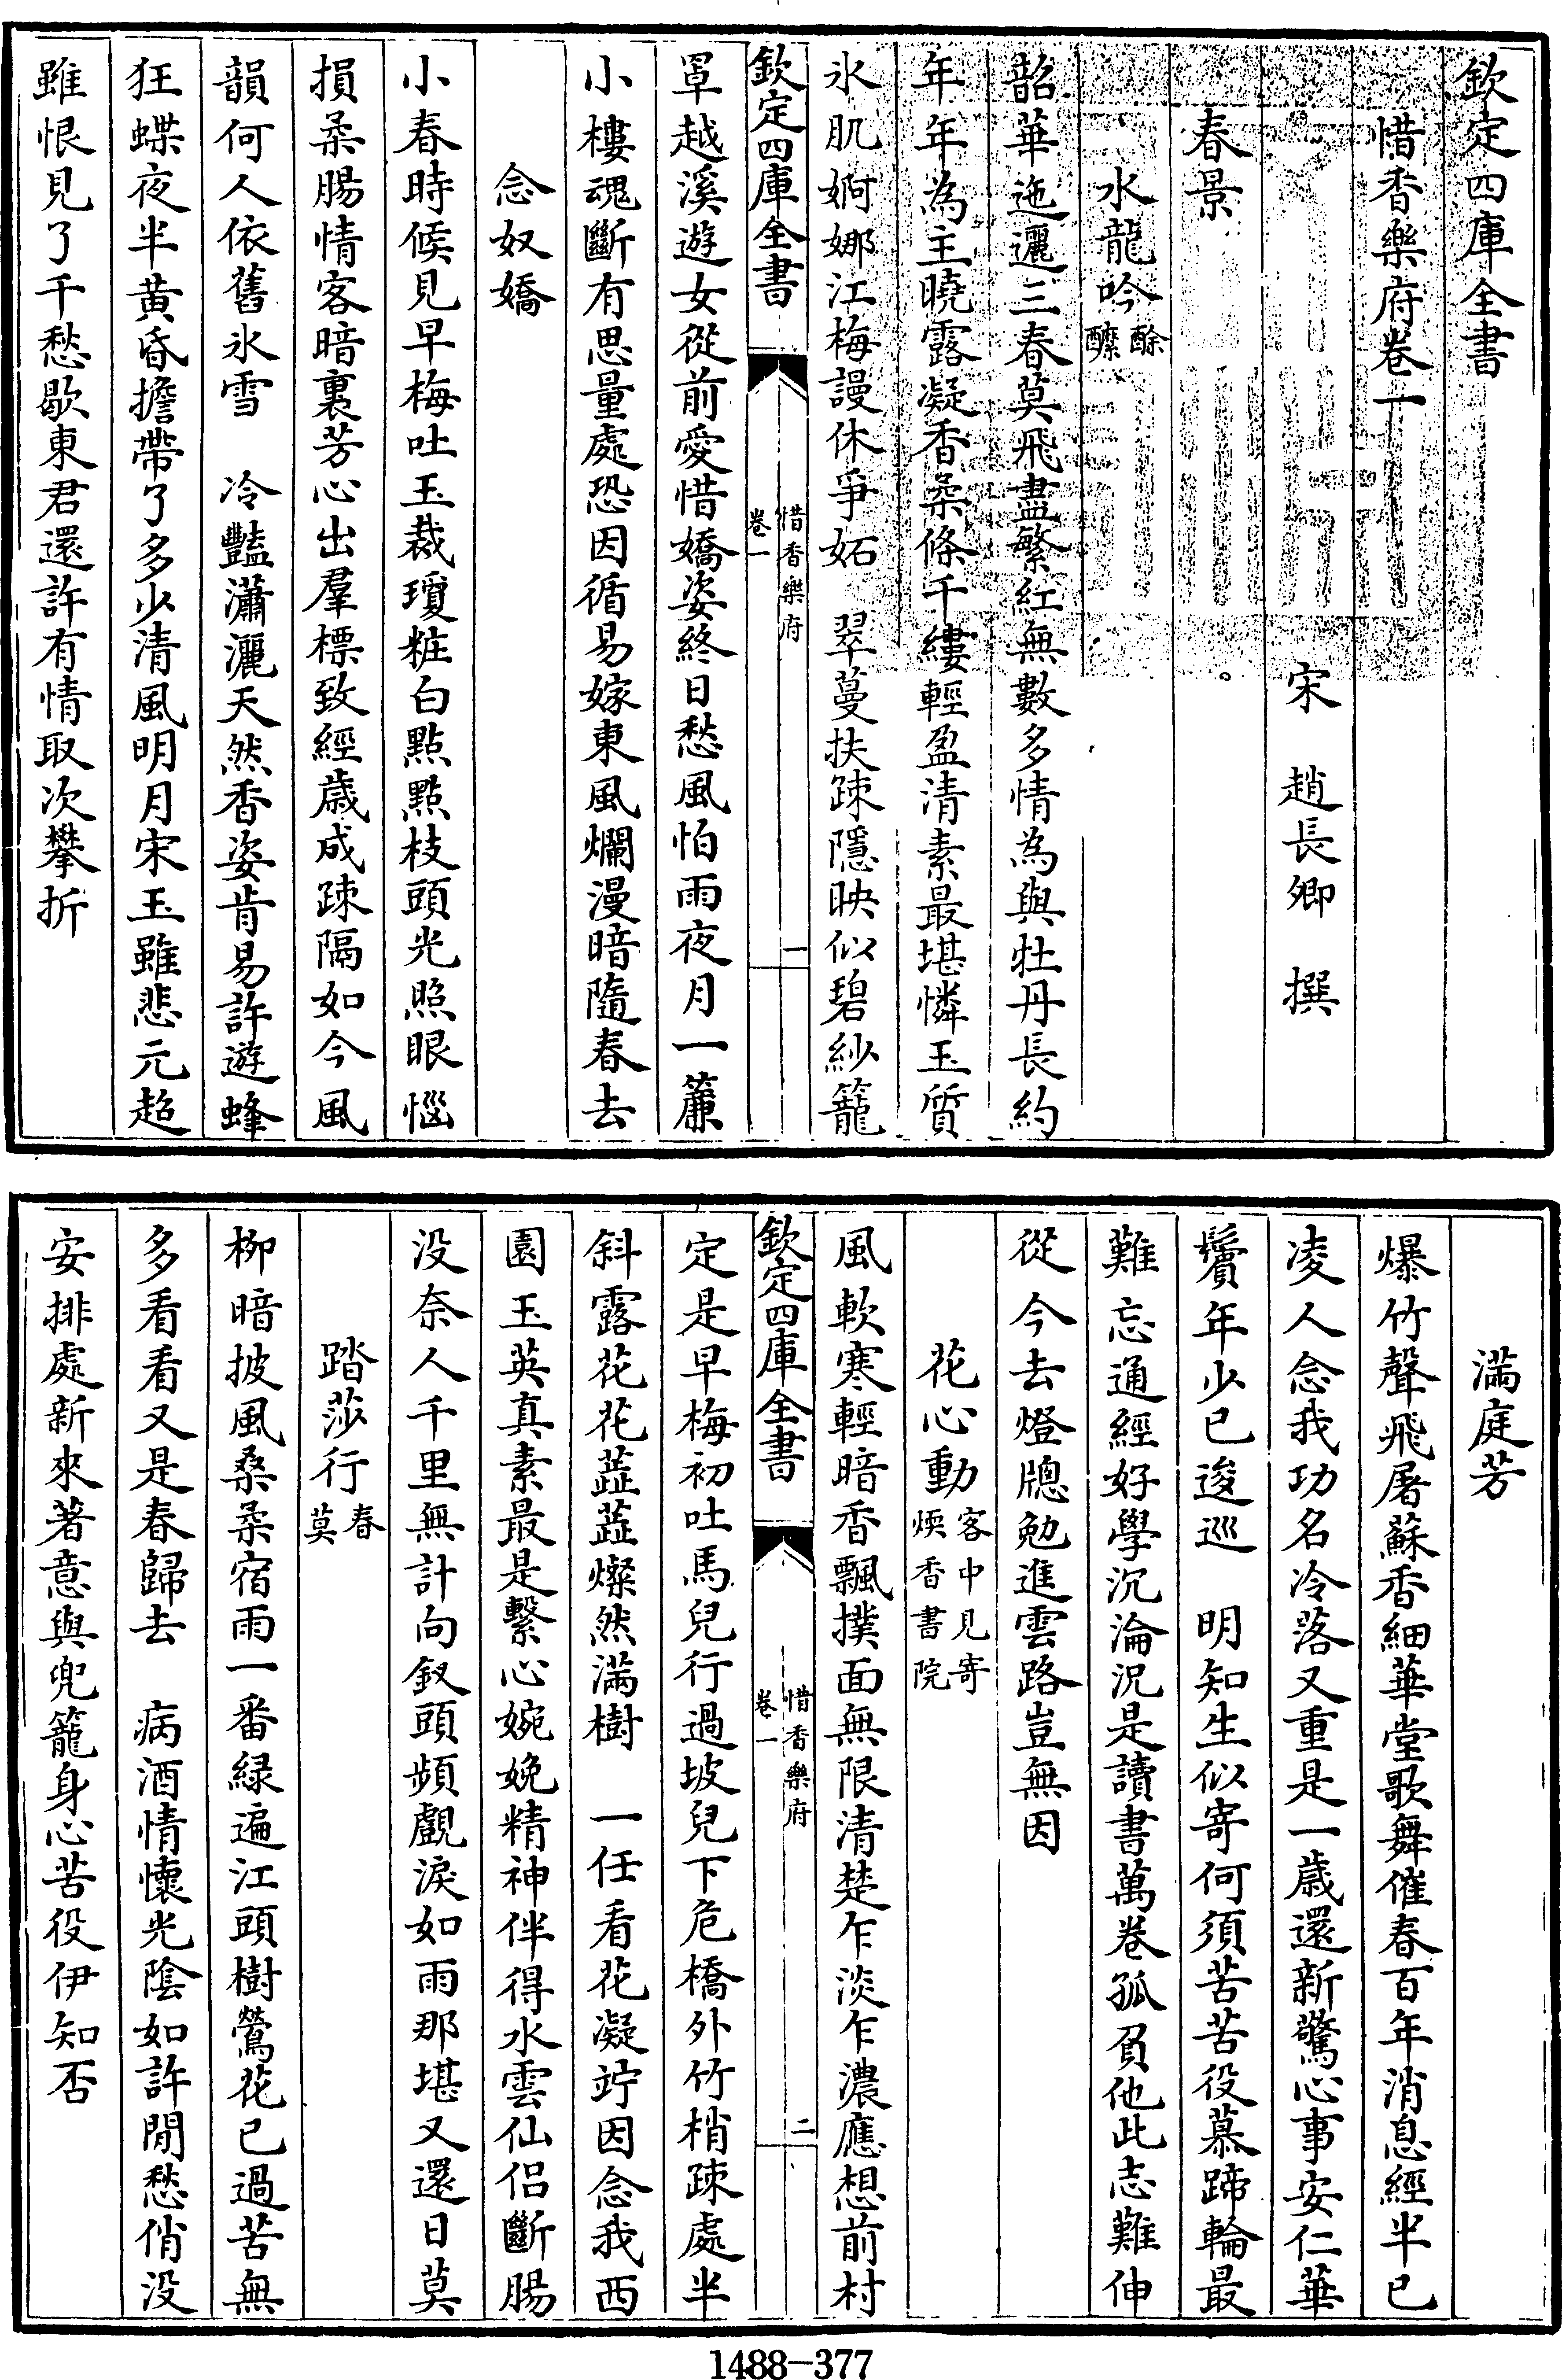 欽定四庫全書
惜香樂府卷一
宋　趙長卿　撰
春景
水龍吟酴醾
韶華迤邐三春莫飛盡繁紅無數多情為與牡丹長約
年年為主曉露凝香柔條千縷輕盈清素最堪憐玉質
氷肌婀娜江梅謾休爭妬　翠蔓扶疎隱映似碧紗籠
欽定四庫全書
惜香樂府
卷一
一
罩越溪遊女從前愛惜嬌姿終日愁風怕雨夜月一簾
小樓魂斷有思量處恐因循易嫁東風爛漫暗隨春去
念奴嬌
小春時候見早梅吐玉裁瓊粧白點點枝頭光照眼惱
損柔腸情客暗裏芳心出羣標致經歲成疎隔如今風
韻何人依舊氷雪　冷豔瀟灑天然香姿肯易許遊蜂
狂蝶夜半黄昏擔帶了多少清風明月宋玉雖悲元超
雖恨見了千愁歇東君還許有情取次攀折
滿庭芳
爆竹聲飛屠蘇香細華堂歌舞催春百年消息經半已
凌人念我功名冷落又重是一歲還新驚心事安仁華
鬢年少已逡巡　明知生似寄何須苦苦役慕蹄輪最
難忘通經好學沉淪況是讀書萬卷孤負他此志難伸
從今去燈牕勉進雲路豈無因
花心動客中見寄煗香書院
風軟寒輕暗香飄撲面無限清楚乍淡乍濃應想前村
欽定四庫全書
惜香樂府
卷一
二
定是早梅初吐馬兒行過坡兒下危橋外竹梢疎處半
斜露花花蕋蕋燦然滿樹　一任看花凝竚因念我西
園玉英真素最是繫心婉娩精神伴得水雲仙侶斷腸
没奈人千里無計向釵頭頻覷淚如雨那堪又還日莫
踏莎行春莫
柳暗披風桑柔宿雨一番緑遍江頭樹鶯花已過苦無
多看看又是春歸去　病酒情懷光陰如許閒愁俏没
安排處新來著意與兜籠身心苦役伊知否
1488-377